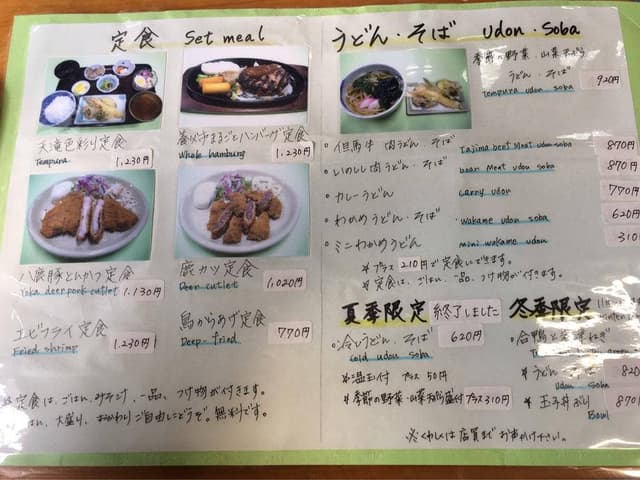 定食 Set meal
天滝色彩り定食
Tempura 1,230円
養父牛まるごとハンバーグ定食
Whole hamburg 1,230円
八鹿豚とんかつ定食
Yoka deer pork cutlet 1,130円
鹿カツ定食
Deer cutlet 1,020円
エビフライ定食
Fried shrimp 1,230円
鳥からあげ定食
Deep-fried 770円
定食は、ごはん、みそ汁、一品、つけ物が付きます。
ごはん、大盛り、おかわりご自由にどうぞ。無料です。
うどん・そば Udon・Soba
季節の野菜、山菜天ぷら
うどん・そば 920円
Tempura udon soba
但馬牛肉うどん・そば Tajima beef Meat udon soba 870円
いのしし肉うどん・そば boar Meat udon soba 870円
カレーうどん carry udon 770円
わかめうどん・そば wakame udon soba 620円
ミニわかめうどん mini wakame udon 310
*プラス210円で定食にできます。
*定食は、ごはん、一品、つけ物が付きます。
夏季限定 終了しました
冷しうどん・そば 620円
Cold udon soba
*温玉付 プラス50円
*季節の野菜・山菜天ぷら盛付プラス310円
冬季限定
合鴨と
*うどん 820
udon soba
*玉子丼ぶり 870
Bowl
※くわしくは店員までお声かけ下さい。